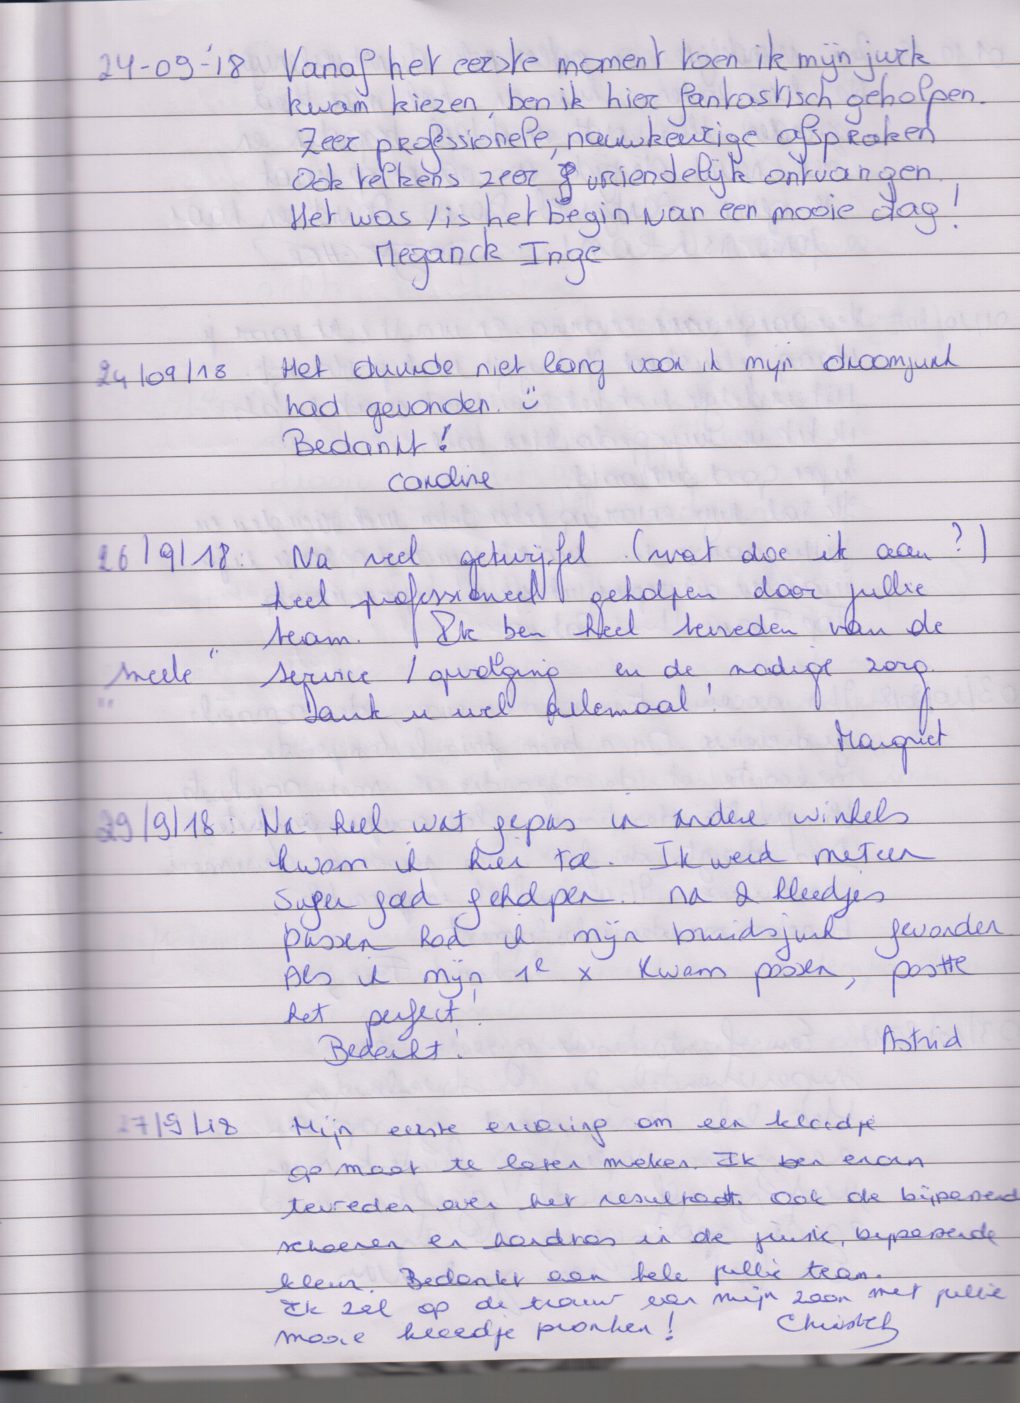 24-09-'18 Vanaf het eerste moment toen ik mijn jurk
kwam kiezen, ben ik hier fantastisch geholpen.
Zeer professionele, nauwkeurige afspraken
Ook telkens zeer vriendelijk ontvangen.
Het was / is het begin van een mooie dag!
Meganck Inge
24/09/18 Het duurde niet lang voor ik mijn droomjurk
had gevonden. ü
Bedankt!
Caroline
26/9/18: Na veel getwijfel (wat doe ik aan?)
heel professioneel geholpen door jullie
team. Ik ben heel tevreden van de
"snelle" service / opvolging en de nodige zorg.
Dank u wel allemaal!
Margriet
29/9/18: Na heel wat gepas in andere winkels
kwam ik hier toe. Ik werd meteen
super goed geholpen. Na 2 kleedjes
passen had ik mijn bruidsjurk gevonden
Als ik mijn 1e x kwam passen, paste
het perfect!
Bedankt! Astrid
27/9/18 Mijn eerste ervaring om een kleedje
op maat te laten maken. Ik ben enorm
tevreden over het resultaat. Ook de bijpassend
schoenen en handtas in de juiste, bijpassende
kleur. Bedankt aan hele jullie team.
Ik zal op de trouw van mijn zoon met jullie
mooie kleedje pronken! Christel